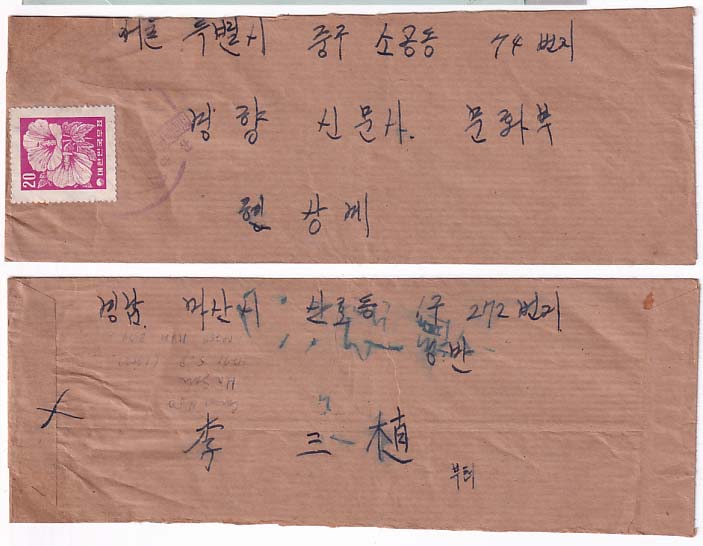 서울 특별시 중구 소공동 74 번지
경향 신문사. 문화부
현 상 계
20
대한민국우표
경남. 마산시 산호동 1구 272 번지
반
李 三 植
부터